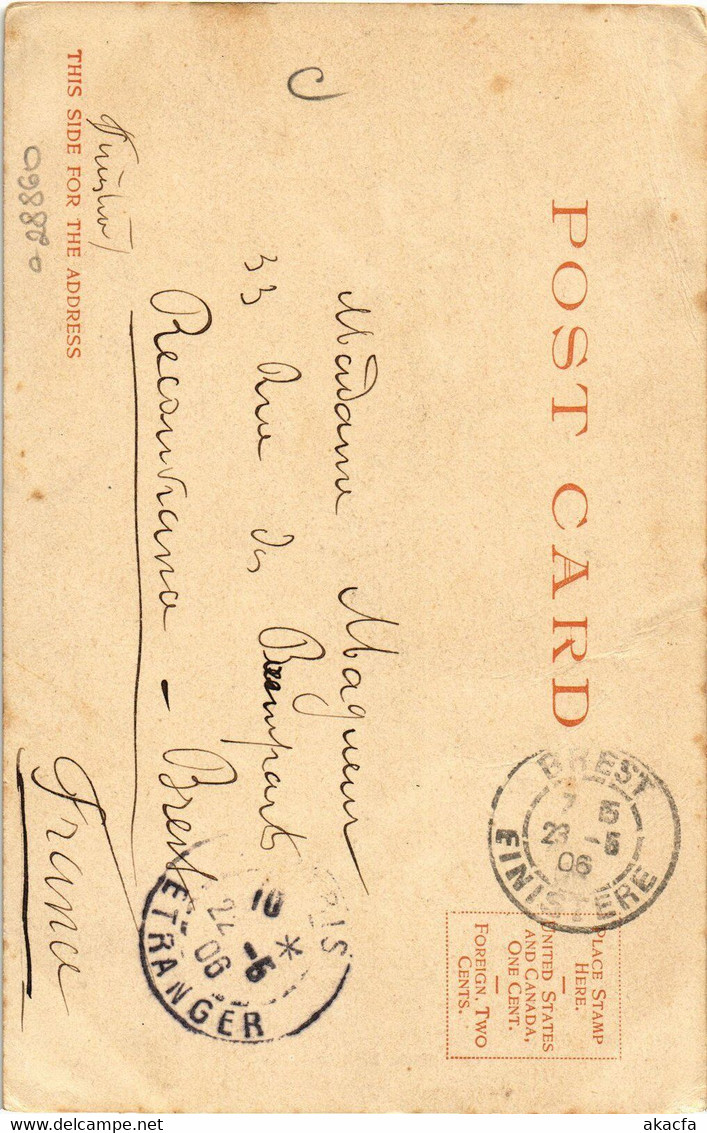 POST CARD
PLACE STAMP
HERE.
—
UNITED STATES
AND CANADA,
ONE CENT.
—
FOREIGN, TWO
CENTS.
BREST
7 5
23 -5
06
FINISTERE
Madame Magueur
33 Rue des Rempart
Recouvrance - Brest
(Finistère)
France
ETRANGER
10
22 -5
06
THIS SIDE FOR THE ADDRESS
delcampe.net
akacfa